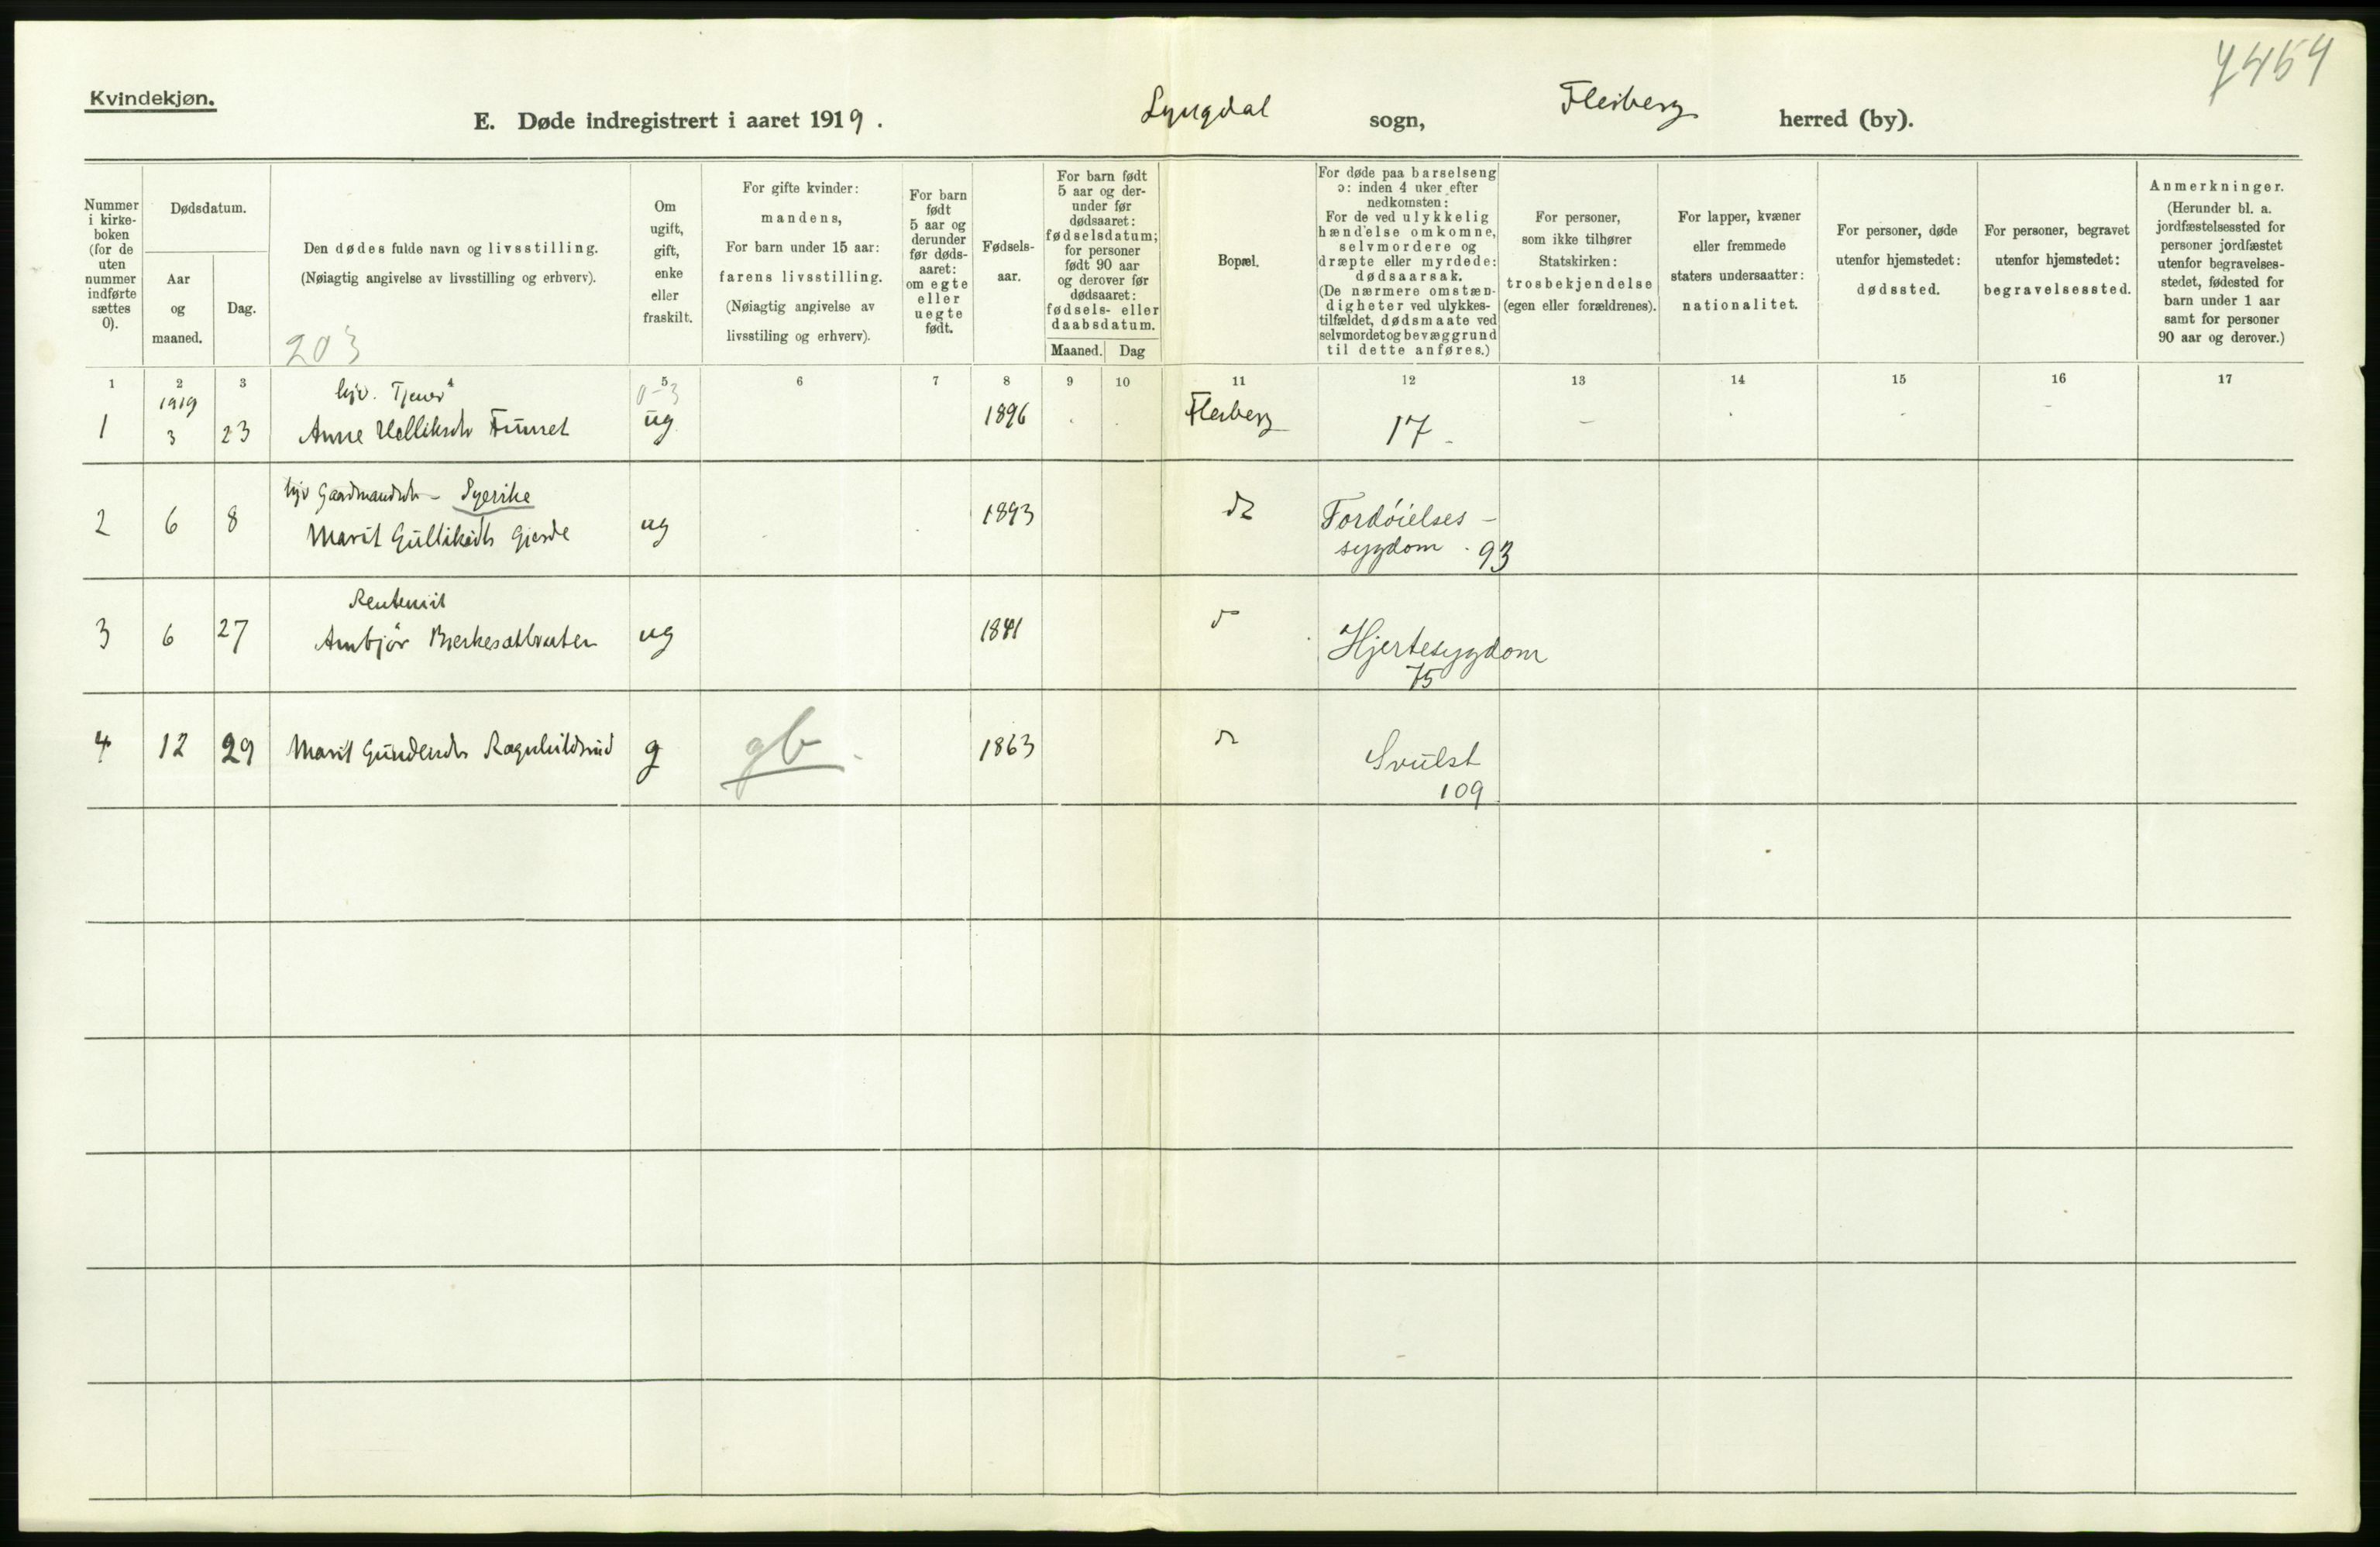 7454
Kvindekjøn.
E. Døde indregistrert i aaret 1919. Lyngdal sogn, Flesberg herred (by).
Nummer i kirkeboken (for de uten nummer indførte sættes 0).
Dødsdatum.
Aar og maaned.
Dag.
Den dødes fulde navn og livsstilling.
(Nøiagtig angivelse av livsstilling og erhverv).
203
Om ugift, gift, enke eller fraskilt.
For gifte kvinder:
mandens,
For barn under 15 aar:
farens livsstilling.
(Nøiagtig angivelse av
livsstiling og erhverv).
For barn født 5 aar og derunder før dødsaaret: om egte eller uegte født.
Fødselsaar.
For barn født 5 aar og derunder før dødsaaret: fødselsdatum; for personer født 90 aar og derover før dødsaaret: fødsels- eller daabsdatum.
Maaned. Dag
Bopæl.
For døde paa barselseng
ɔ: inden 4 uker efter
nedkomsten:
For de ved ulykkelig
hændelse omkomne,
selvmordere og
dræpte eller myrdede:
dødsaarsak.
(De nærmere omstæn-
digheter ved ulykkes-
tilfældet, dødsmaate ved
selvmordet og bevæggrund
til dette anføres.)
For personer,
som ikke tilhører
Statskirken:
trosbekjendelse
(egen eller forældrenes).
For lapper, kvæner
eller fremmede
staters undersaatter:
nationalitet.
For personer, døde
utenfor hjemstedet:
dødssted.
For personer, begravet
utenfor hjemstedet:
begravelsessted.
Anmerkninger.
(Herunder bl. a.
jordfæstelsessted for
personer jordfæstet
utenfor begravelses-
stedet, fødested for
barn under 1 aar
samt for personer
90 aar og derover.)
1 2 3 4 5 6 7 8 9 10 11 12 13 14 15 16 17
1919 hjv. Tjener 0-3
1 3 23 Anne Helliksdtr Funret ug 1896 Flesberg 17
hjv Gaardmandsdtr - Syerske
2 6 8 Marit Gulliksdtr Gjerde ug 1893 do Fordøielses-
sygdom. 93
Rentenist
3 6 27 Ambjør Bjerkesætbraaten ug 1841 do Hjertesygdom
75
4 12 29 Marit Gundersdtr Ragnhildsrud g gb. 1863 do Svulst
109